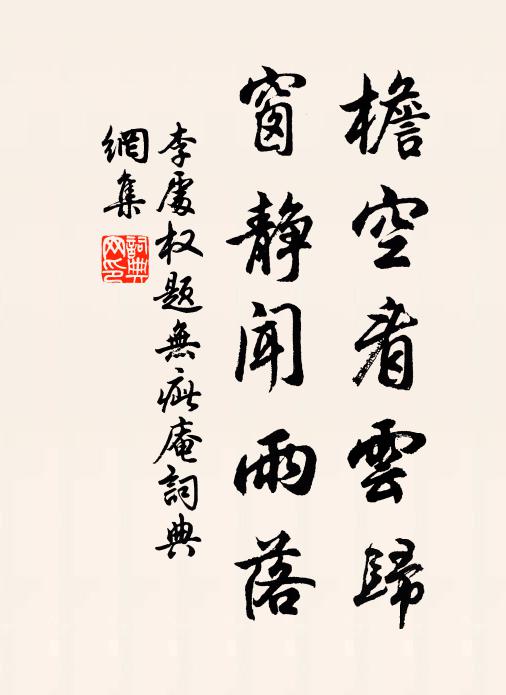 檐空看雲歸
窗靜聞雨落
李處权題無疵庵詞典
網集
詞典
网印